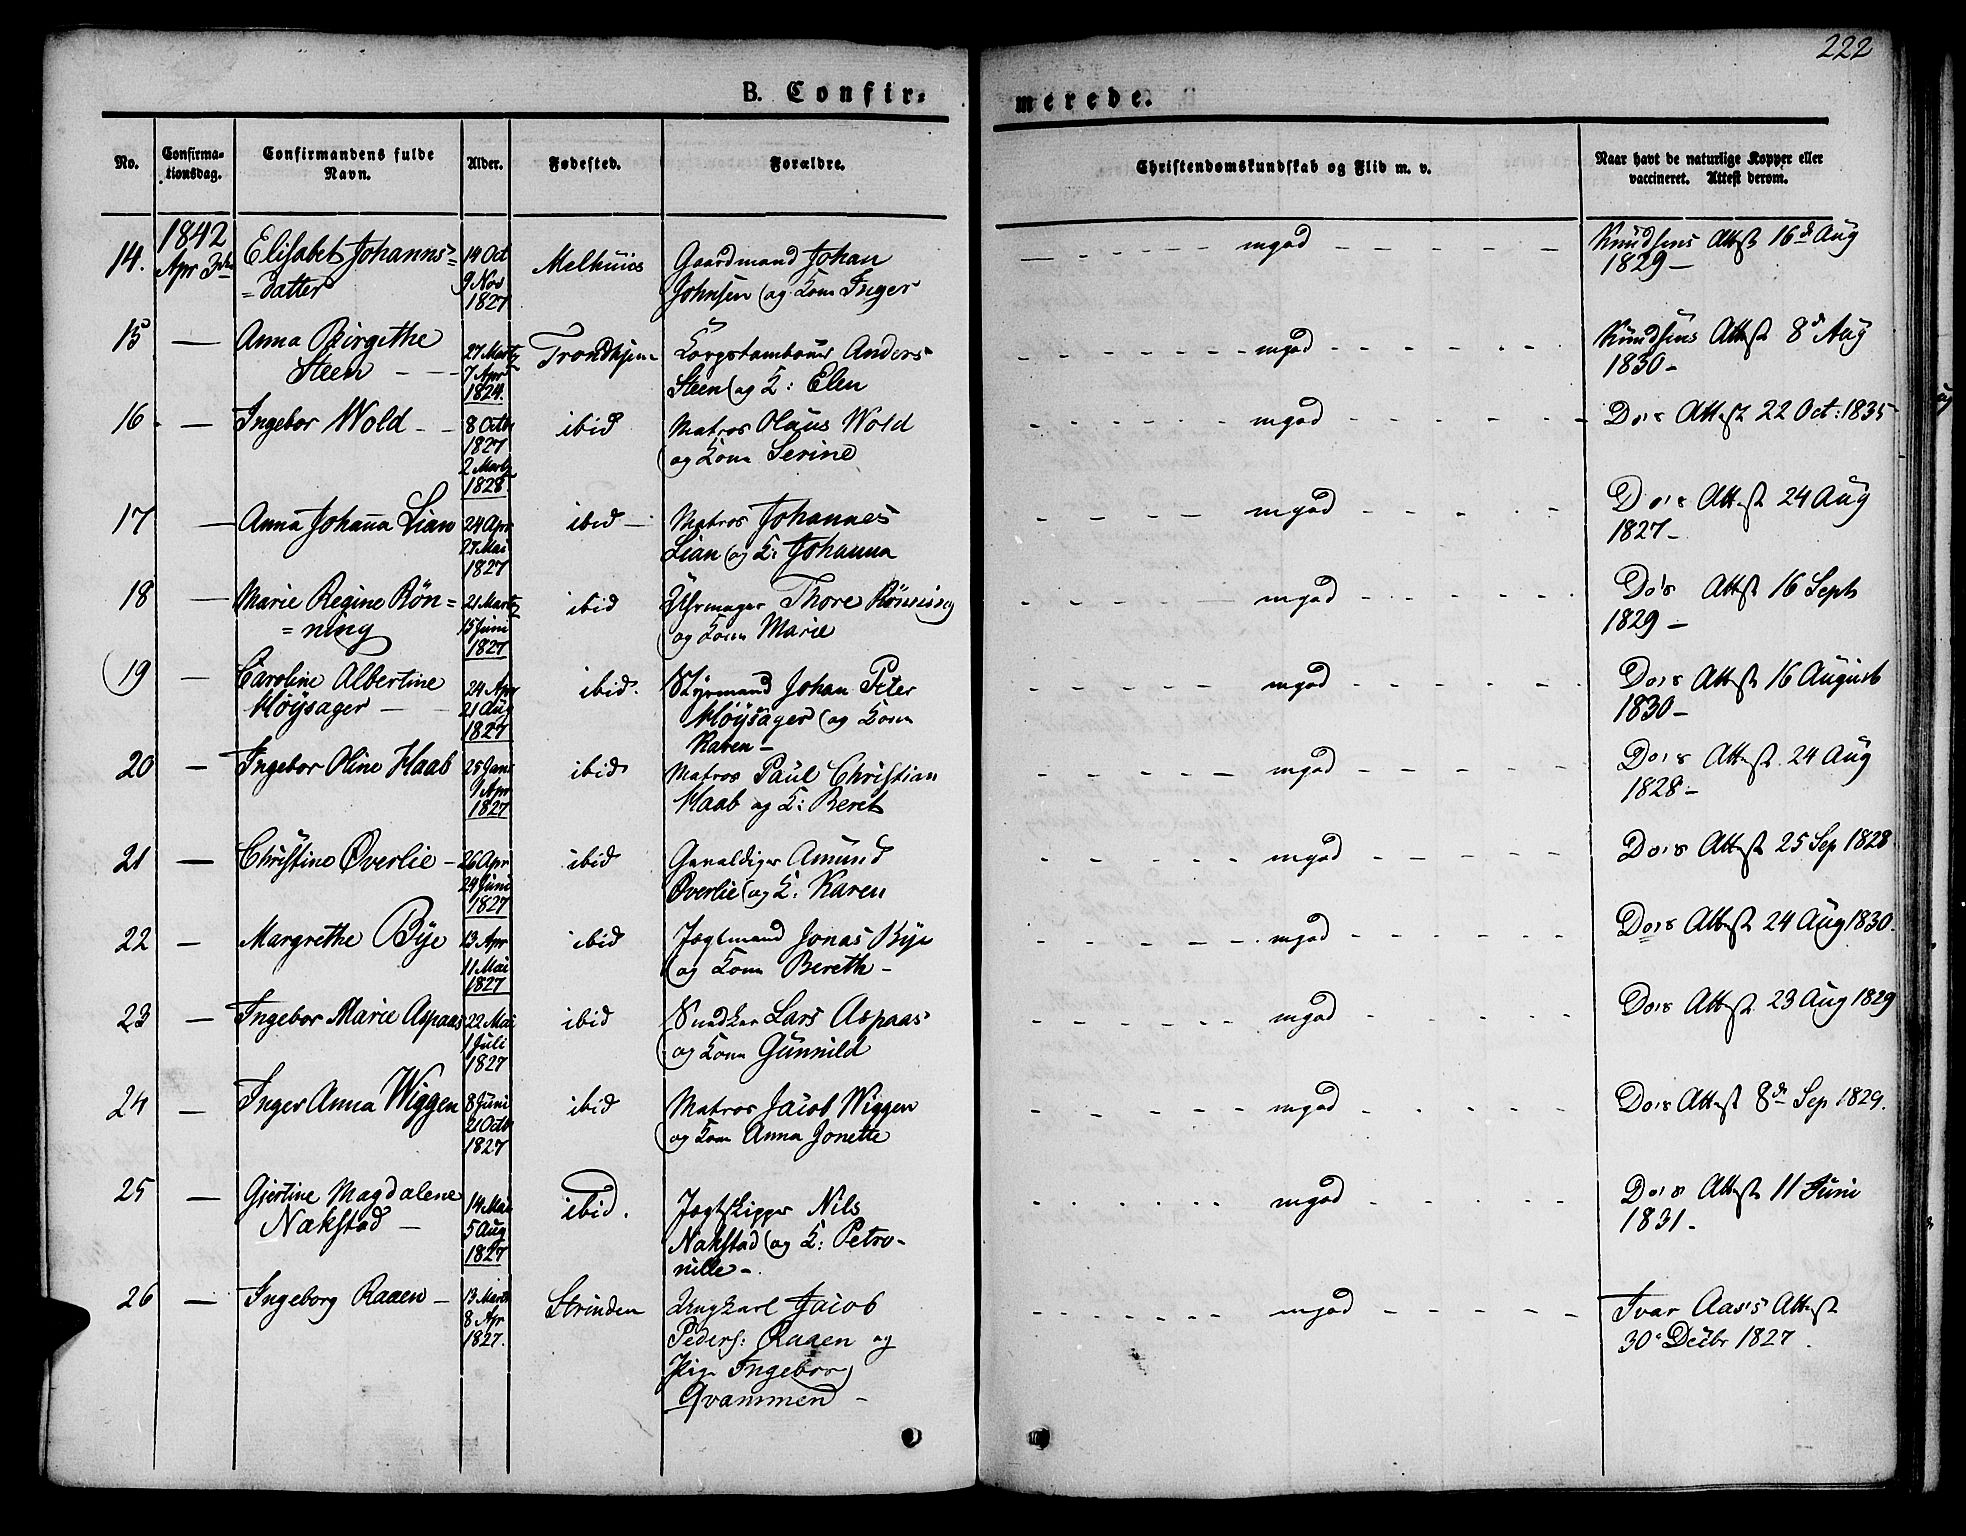 222
B. Confir-
merede.
No.
Confirma-
tionsdag.
Confirmandens fulde
Navn.
Alder.
Fødested.
Forældre.
Christendomskundskab og Flid m. v.
Naar havt de naturlige Kopper eller
vaccineret. Attest derom.
1842
14. Apr 3die Elisabet Johanns= 14 Oct Melhuus Gaardmand Johan mgod Knudsens Attest 16de Aug
=datter 9 Nov Johnsen og Kone Inger 1829 -
1827
15 — Anna Birgithe 27 Marts Trondhjem Corpstambour Anders mgod Knudsens Attest 8de Aug
Steen 7 Apr Steen og K: Elen 1830 -
1824.
16 — Ingebor Wold 8 Octbr ibid Matros Olaus Wold mgod Do's Attest 22 Oct: 1835
1827 og Kone Serine
2 Marts
1828.
17 — Anna Johanna Lian 24 Apr ibid Matros Johannes mgod Do's Attest 24 Aug
27 Mai Lian og K: Johanna 1827 -
1827
18 — Marie Regine Røn= 21 Marts ibid Uhrmager Thore Rønning mgod Do's Attest 16 Septb
=ning 15 Juni og Kone Marie 1829 -
1827
19 — Caroline Albertine 24 Apr ibid. Styrmand Johan Peter mgod Do's Attest 16 August
Høysager 21 Aug Høysager og Kone 1830 -
1827 Karen -
20 — Ingebor Oline Haab 25 Jan ibid Matros Paul Christian mgod Do's Attest 24 Aug
9 Apr Haab og K: Beret 1828 -
1827
21 — Christine Øverlie 26 Apr ibid Gevaldiger Amund mgod Do's Attest 25 Sep 1828
24 Juni Øverlie og K: Karen
1827
22 — Margrethe Bye 13 Apr ibid Jægtmand Jonas Bye mgod Do's Attest 24 Aug 1830.
11 Mai og Kone Bereth -
1827
23 — Ingebor Marie Aspaas 22 Mai ibid Snedker Lars Aspaas mgod Do's Attest 23 Aug 1829
1 Juli og Kone Gunnild
1827
24 — Inger Anna Wiggen 8 Juni ibid Matros Jacob Wiggen mgod Do's Attest 8de Sep 1829.
21 Octb og Kone Anna Jonette
1827
25 — Gjertine Magdalene 14 Mai ibid. Jægtskipper Nils mgod Do's Attest 11 Juni
Nakstad - 5 Aug Nakstad og K: Petro- 1831 -
1827 nille -
26 — Ingeborg Raaen 13 Marts Strinden Ungkarl Jacob mgod Ivar Aas's Attest
8 Apr Peders: Raaen og 30 Decbr 1827.
1827. Pige Ingeborg
Qvammen -